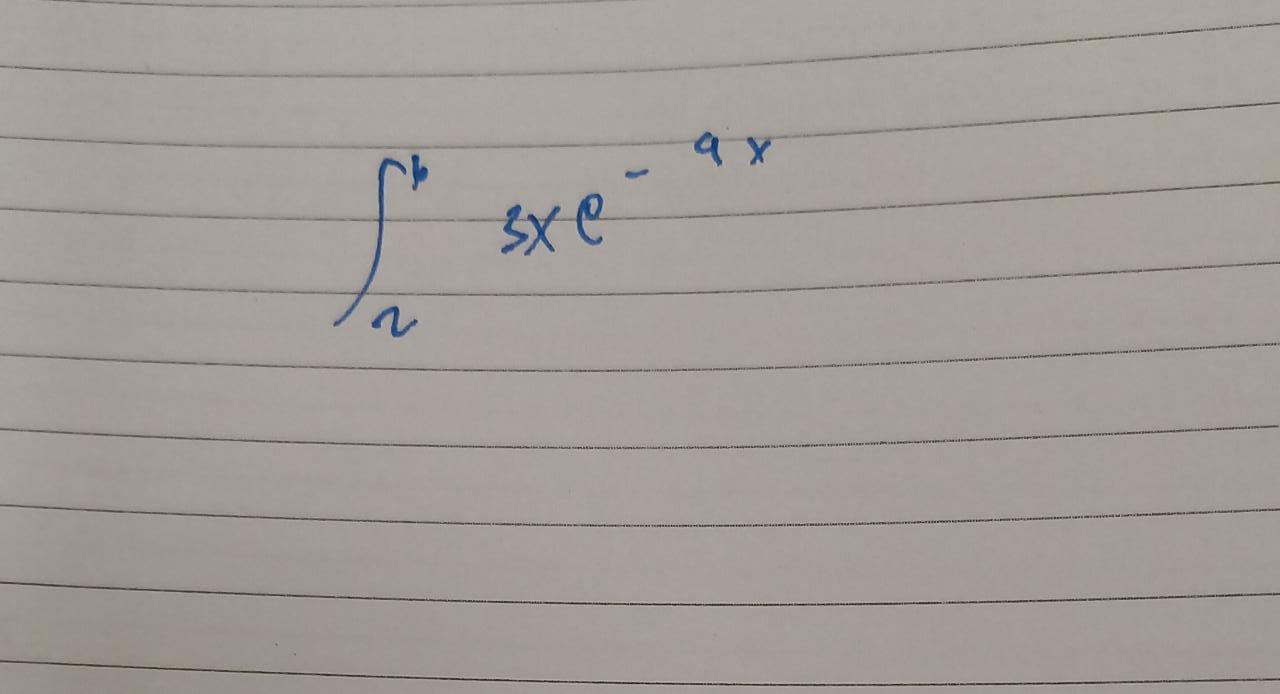 ∫₂ᵇ 3xe^{- 9x}